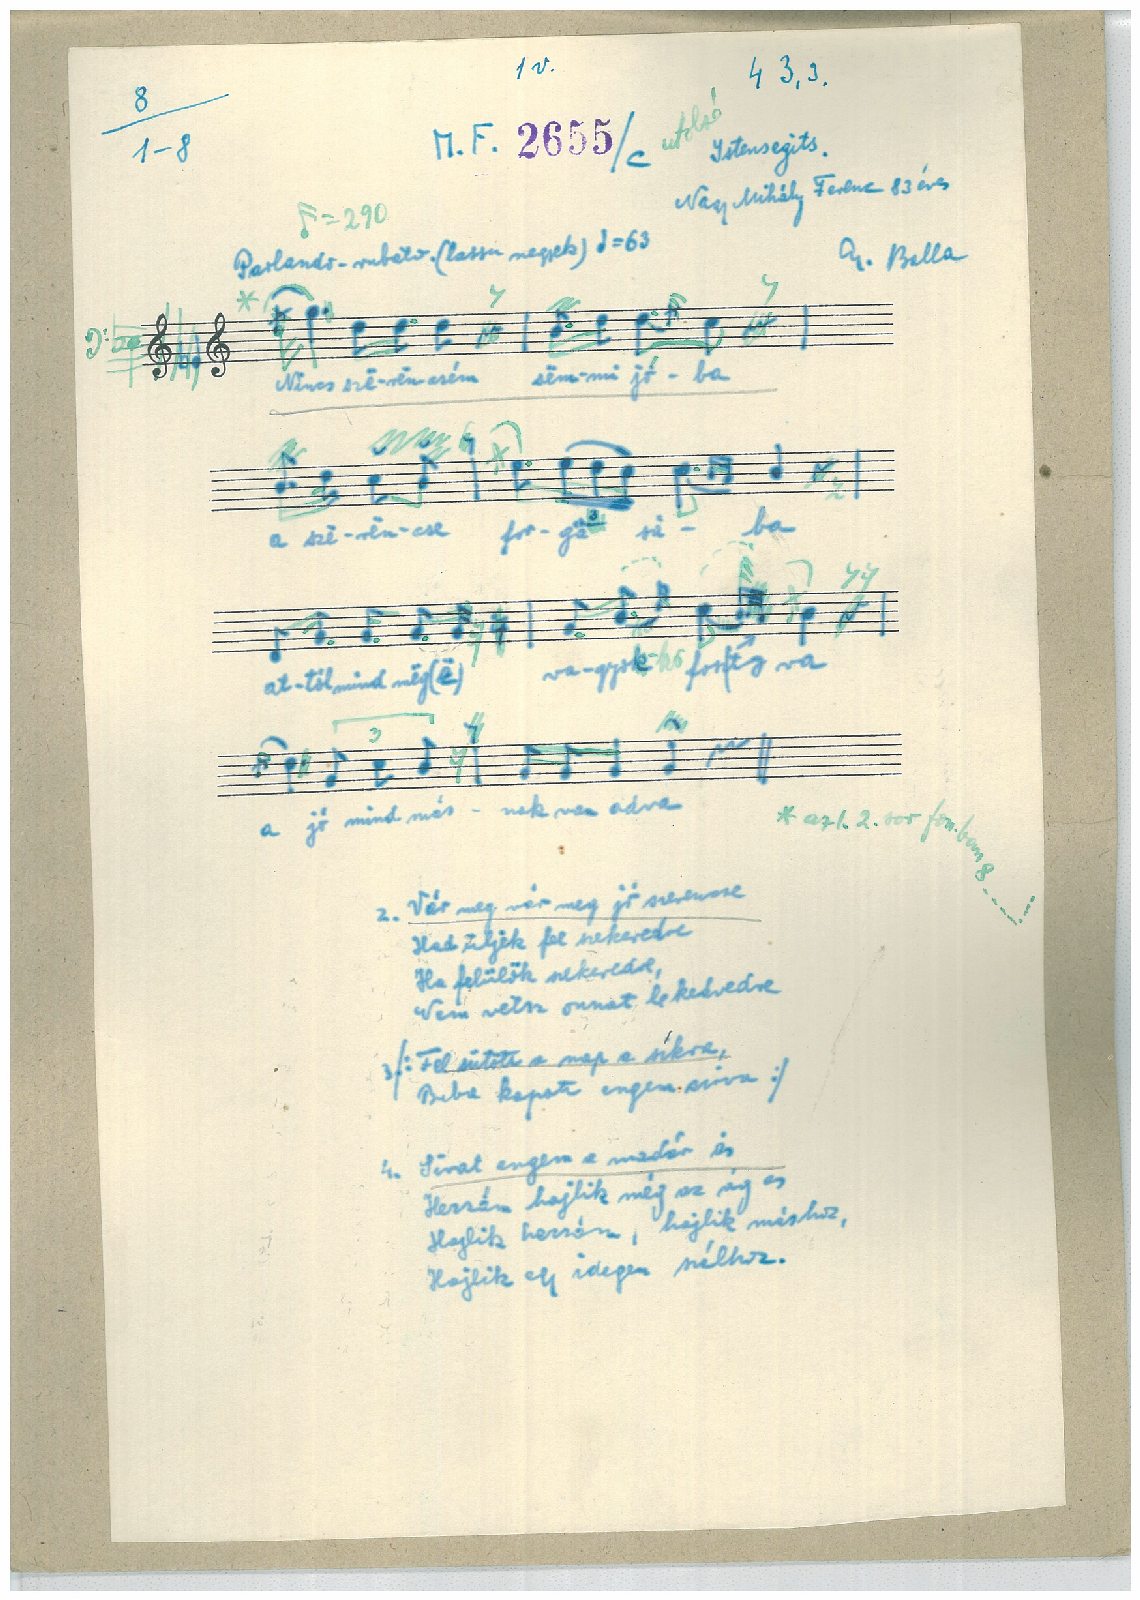 8
1-8
1 v.
4 3,3.
M.F. 2655/c
utolsó
Istensegits.
Nagy Mihály Ferenc 83 éves
=290
Parlando-rubato. (lassu negyek) ♩=63
Gy. Balla
Nincs szë-rën-csém sëm-mi jó-ba
a szë-rën-cse for-gá sá-ba
at-tól mind még(ë) va-gyok fosztva
3
a jó mind más-nak van adva
* az 1. 2. sor fon.ban 8
2. Vár meg vár meg jó szerencse
Had üljek fel szekeredre
Ha felülök szekeredre,
Nem vetsz onnat le kedvedre
3./: Fel sütött a nap a síkra,
Beba kapott engem sírva :/
4. Sirat engem a madár is
Hezzám hajlik még az ág es
Hajlik hezzám, hajlik máshoz,
Hajlik egy idegen szálhoz.